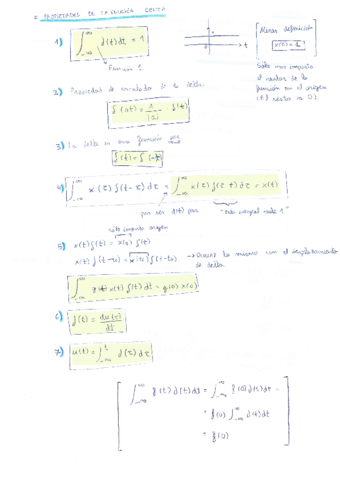 * PROPIEDADES DE LA FUNCIÓN DELTA
1) ∫_{-∞}^{∞} δ(t)dt = 1
Función 1
t
[Mirar definición
x(0) = 1]
Sólo nos importa
el valor de la
función en el origen
(el resto es 0).
2) Propiedad de escalado de la delta
δ(at) = 1/|a| · δ(t)
3) La delta es una función par
δ(t) = δ(-t)
4) ∫_{-∞}^{∞} x(τ) δ(t-τ) dτ = ∫_{-∞}^{∞} x(t) δ(t-τ) dτ = x(t)
por ser δ(t) par
"Esta integral vale 1"
sólo importa origen
5) x(t) δ(t) = x(0) δ(t)
x(t) δ(t-t0) = x(t0) δ(t-t0) → Ocurre lo mismo con el desplazamiento
de delta.
∫_{-∞}^{∞} g(t) x(t) δ(t) dt = g(0) x(0)
6) δ(t) = du(t)/dt
7) u(t) = ∫_{-∞}^{t} δ(τ) dτ
[∫_{-∞}^{∞} g(t) δ(t) dt = ∫_{-∞}^{∞} g(0) δ(t) dt =
= g(0) ∫_{-∞}^{∞} δ(t) dt
= g(0)]